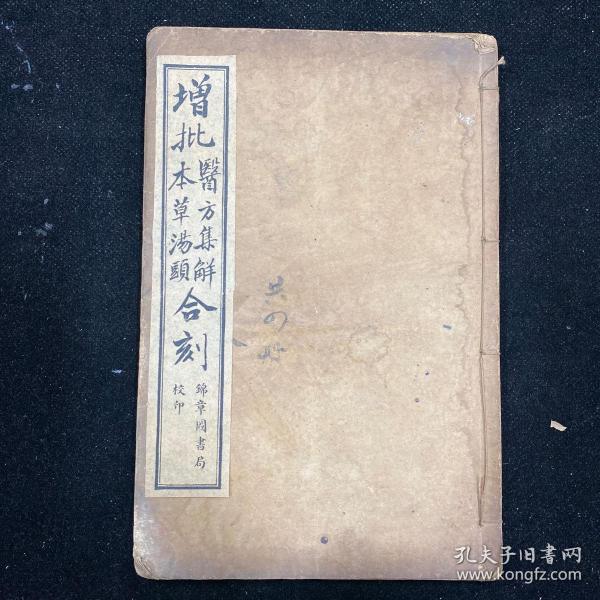 增批
醫方集解
本草湯頭
合刻
錦章圖書局
校印
共四册
孔夫子旧书网
www.kongfz.com